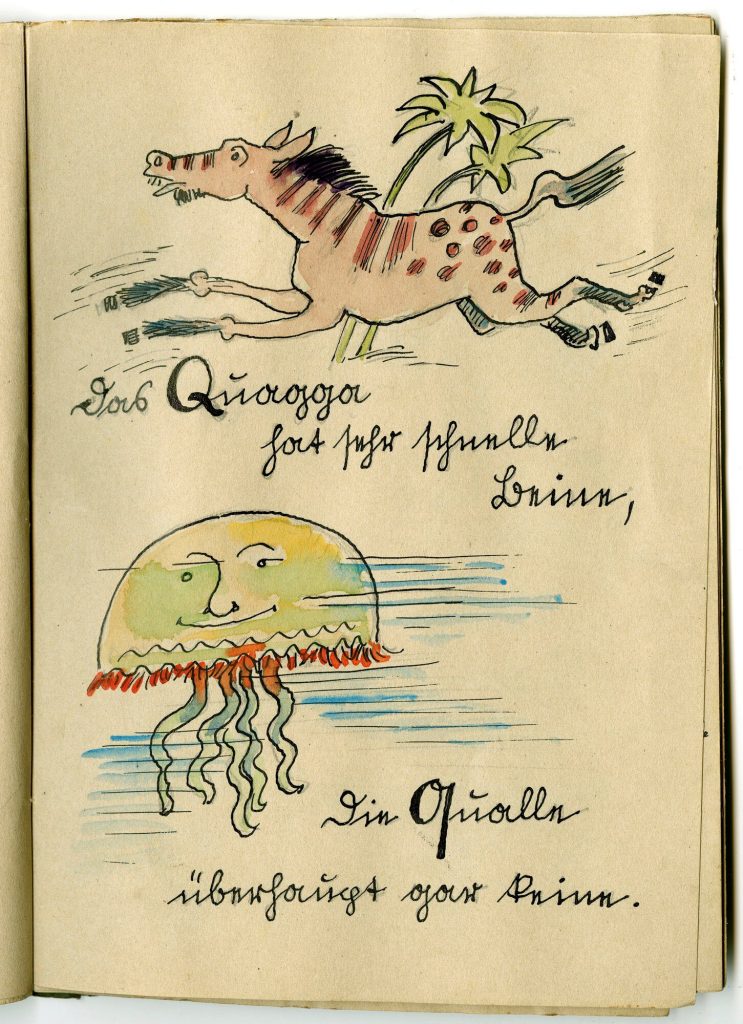 Das Quagga
hat sehr schnelle
Beine,
Die Qualle
überhaupt gar keine.